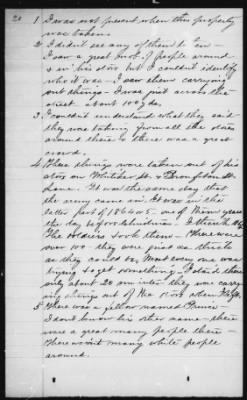 20 1 I was not present when this property
was taken.
2 I didn't see any of them to know
I saw a great many of people around
& in his store but I couldn't identify
who it was - I saw them carrying
out things - I was just across the
street about 100 yds.
3 I couldn't understand what they said
they was taking from all the stores
around there & there was a great
crowd.
4 These things were taken out of his
store on Whitaker St. &
Lane. It was the same day that
the army came in. It was in the
latter part of 1864 or 5 one of them years
the day before
The soldiers took them - There were
over 100 - they were just as thick
as they could be. Most every one was
trying to get something - I stood there
only about 20 minutes they was carry
ing things out of the store when I left.
5 There was a fellow named Prince -
I don't know his other name - there
were a great many people there -
There wasn't many white people
around.